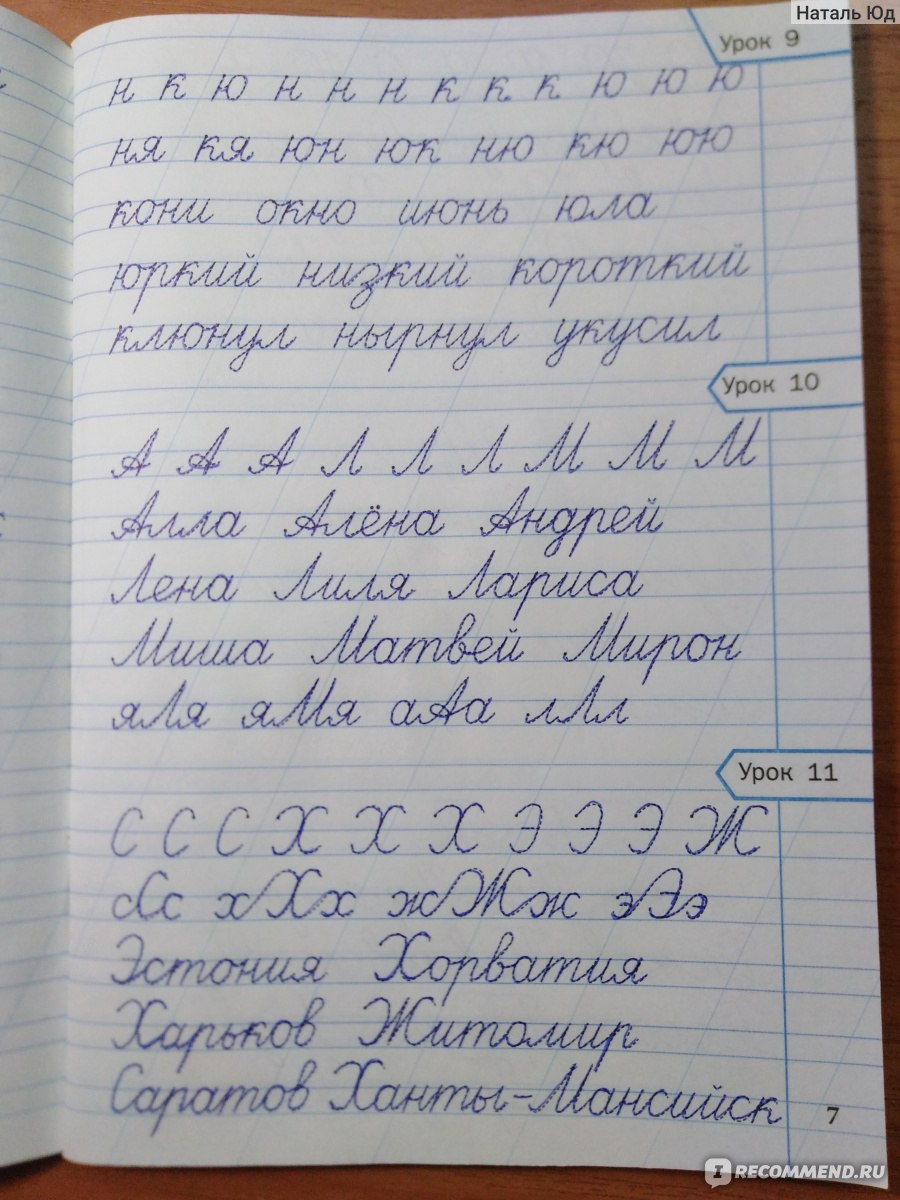 Наталь Юд
Урок 9
н к ю н н н к к к ю ю ю
ня кя юн юк ню кю юю
кони окно июнь юла
юркий низкий короткий
клюнул нырнул укусил
Урок 10
А А А Л Л Л М М М
Алла Алёна Андрей
Лена Лиля Лариса
Миша Матвей Мирон
яЛя яМя аАа лЛл
Урок 11
С С С Х Х Х Э Э Э Ж
сСс хХх жЖж эЭэ
Эстония Хорватия
Харьков Житомир
Саратов Ханты-Мансийск
7
IRECOMMEND.RU